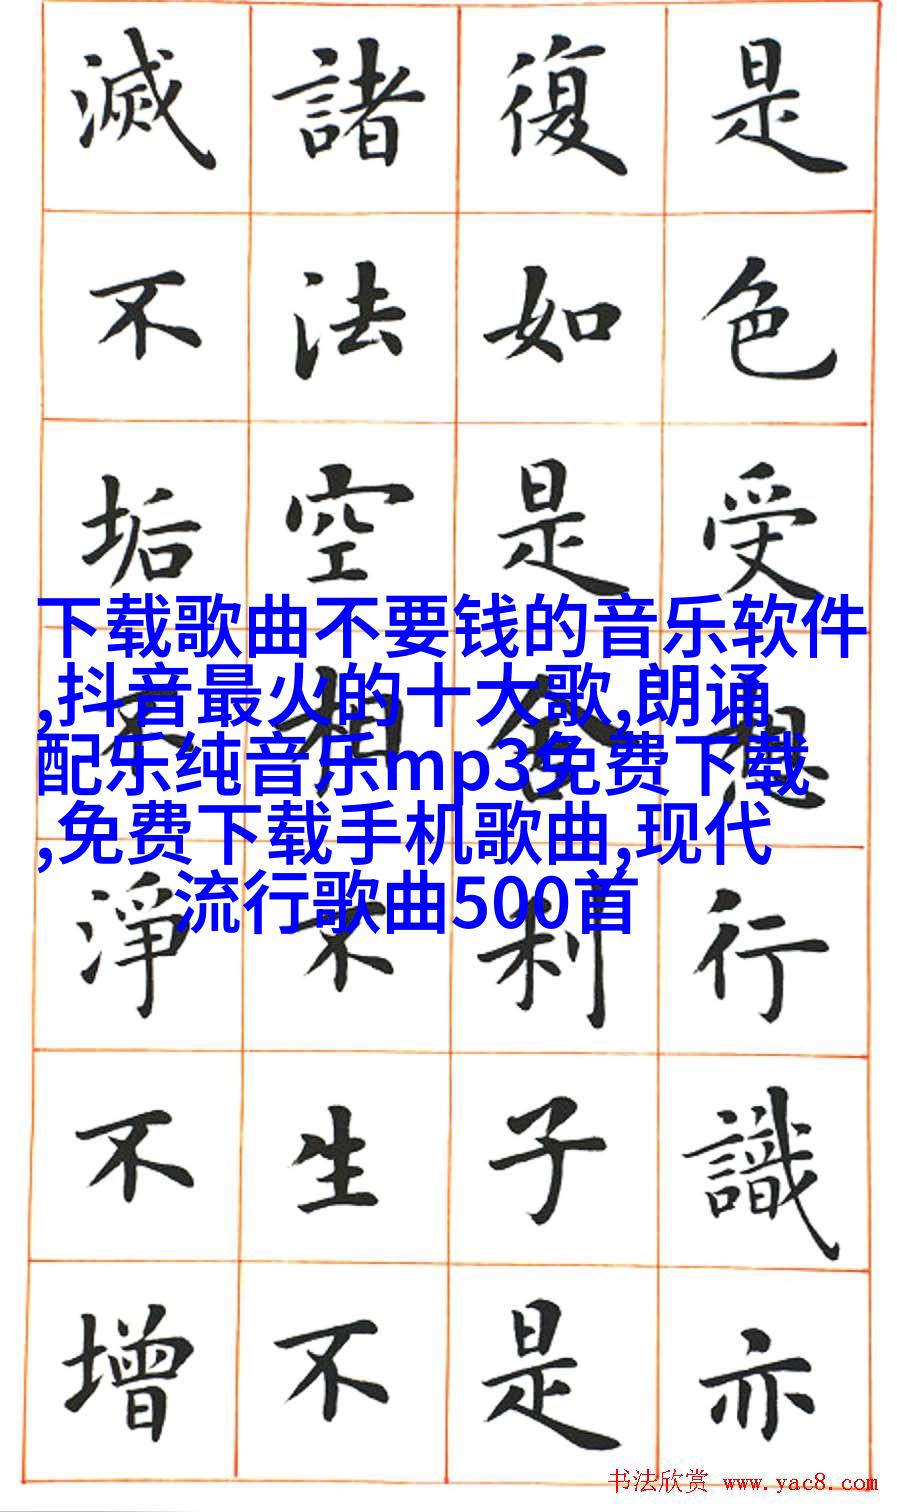 是色受想行識亦
復如是舍利子是
諸法空相不生不
滅不垢不淨不增
下载歌曲不要钱的音乐软件
,抖音最火的十大歌,朗诵
配乐纯音乐mp3免费下载
,免费下载手机歌曲,现代
流行歌曲500首
书法欣赏 www.yac8.com